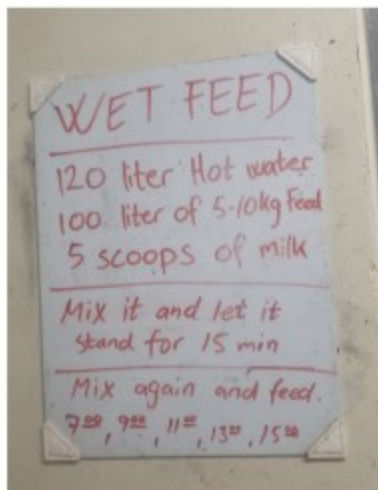 WET FEED
120 liter Hot water
100 liter of 5-10kg Feed
5 scoops of milk
Mix it and let it
stand for 15 min
Mix again and feed.
7⁰⁰, 9⁰⁰, 11⁰⁰, 13⁰⁰, 15⁰⁰